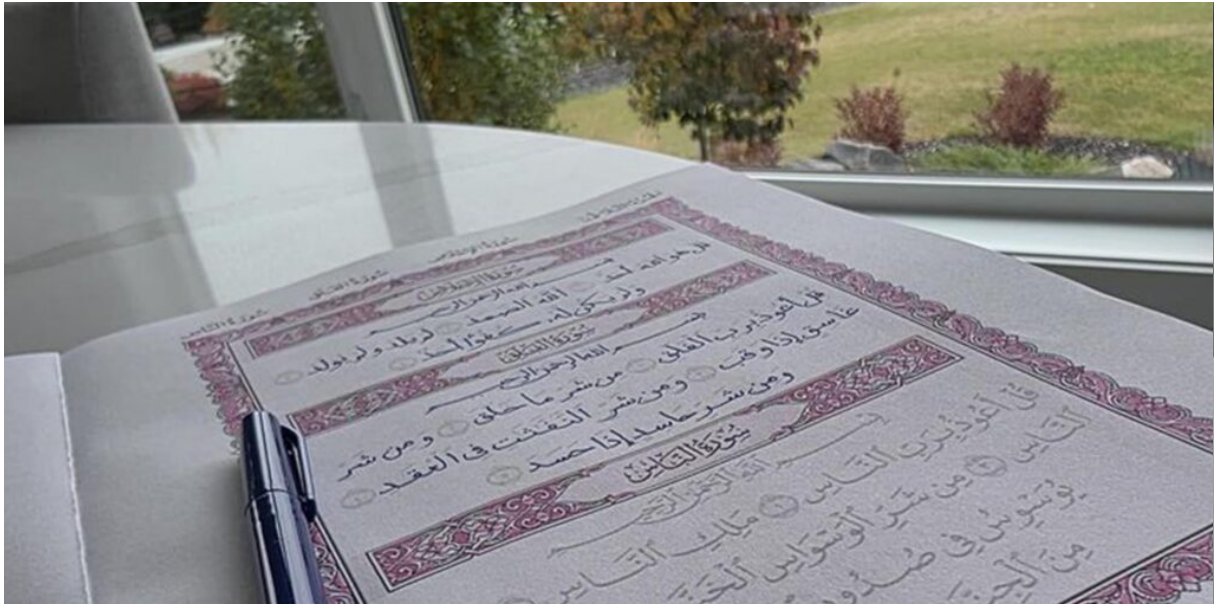 سورة الناس
سورة الفلق
سورة الإخلاص
بسم الله الرحمن الرحيم
قل هو الله أحد الله الصمد لم يلد ولم يولد
ولم يكن له كفوا أحد
سورة الفلق
بسم الله الرحمن الرحيم
قل أعوذ برب الفلق من شر ما خلق ومن شر
غاسق إذا وقب ومن شر النفثت فى العقد
ومن شر حاسد إذا حسد
سُورَةُ النَّاسِ
بِسْمِ اللَّهِ الرَّحْمَٰنِ الرَّحِيمِ
قُلْ أَعُوذُ بِرَبِّ النَّاسِ مَلِكِ النَّاسِ
النَّاسِ مِن شَرِّ الْوَسْوَاسِ الْخَنَّ
يُوَسْوِسُ فِى صُدُورِ
مِنَ الْجِنَّ